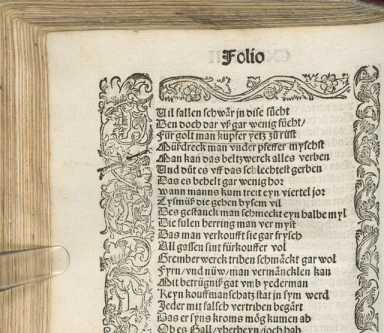 Folio
Uil fallen schwär in dise sücht
Den doch dar vß gar wenig fücht/
Für golt man kupfer yetz zů rüst
Müßdreck man vnder pfeffer myschst
Man kan das beltzwerck alles verben
Und důt es vff das schlechtest gerben
Das es behelt gar wenig hor
wann manns kum treit eyn viertel jor
Zysmüß die geben bysem vil
Des gestanck man schmeckt eyn halbe myl
Die fulen hering man ver myst
Das man verkoufft sie gar frysch
All gassen sint fürkouffer vol
Gremberwerck triben schmäckt gar wol
Fyrn/ vnd nüw/ man vermäncklen kan
Mit betrügniß gat vmb yederman
Keyn kouffmanschatz stat jn sym werd
Jeder mit falsch vertriben begärt
Das er syns kroms mög kumen ab
Ob es Gall/ vberbeyn joch hab